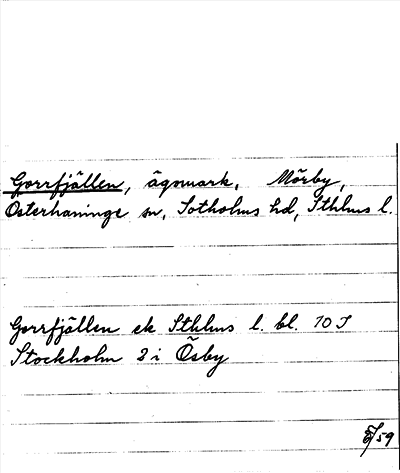 Gorrfjällen, ägomark, Mörby,
Österhaninge sn, Sotholms hd, Sthlms l.
Gorrfjällen ek Sthlms l. bl. 10 J
Stockholm 2 i Ösby
/59